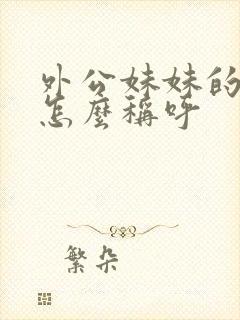 外公妹妹的
怎麼稱呼
繁朵